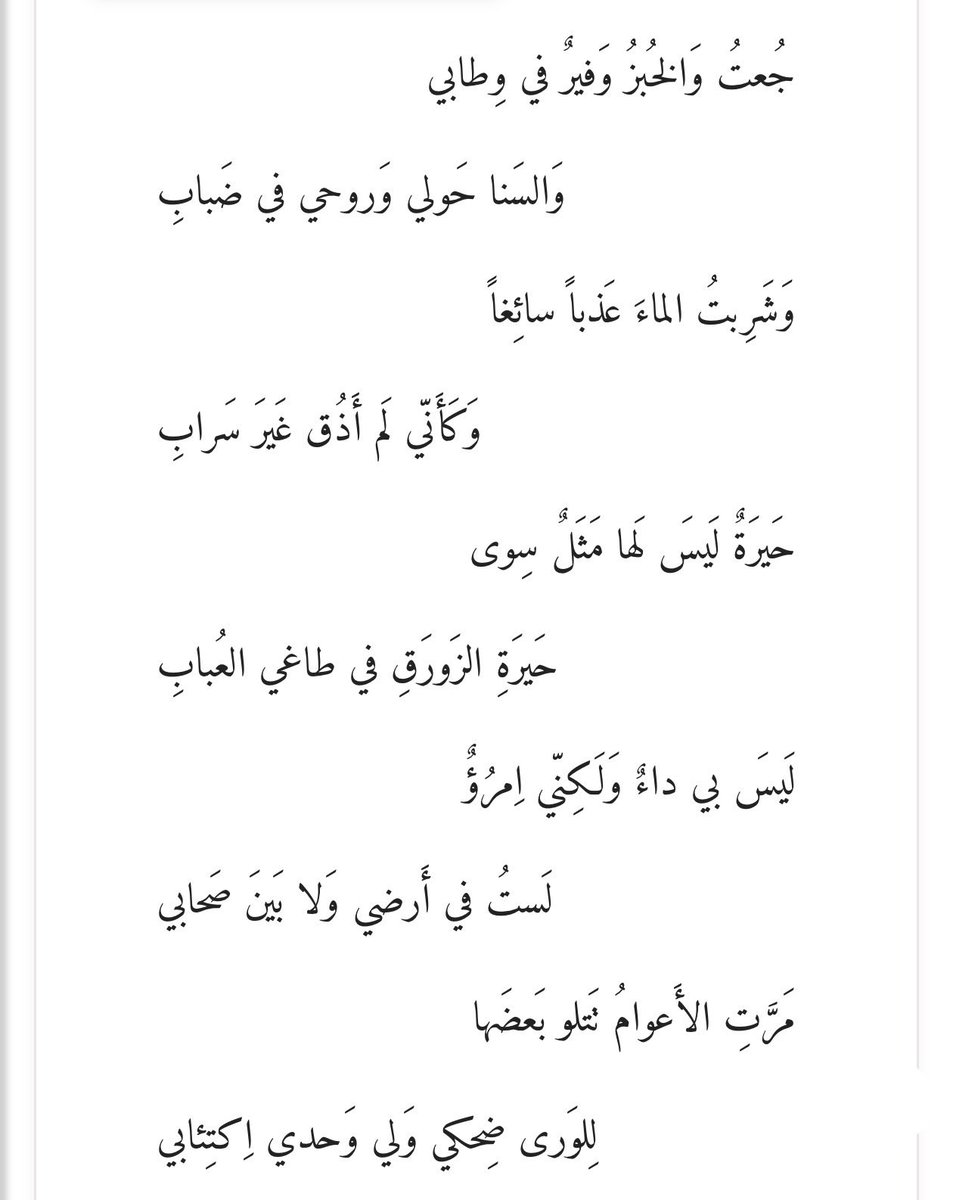 جُعتُ وَالخُبزُ وَفيرٌ في وِطابي
وَالسَنا حَولي وَروحي في ضَبابِ
وَشَرِبتُ الماءَ عَذباً سائِغاً
وَكَأَنّي لَم أَذُق غَيرَ سَرابِ
حَيرَةٌ لَيسَ لَها مَثَلٌ سِوى
حَيرَةِ الزَورَقِ في طاغي العُبابِ
لَيسَ بي داءٌ وَلَكِنّي اِمرُؤٌ
لَستُ في أَرضي وَلا بَينَ صَحابي
مَرَّتِ الأَعوامُ تَتلو بَعضَها
لِلوَرى ضِحكي وَلي وَحدي اِكتِئابي